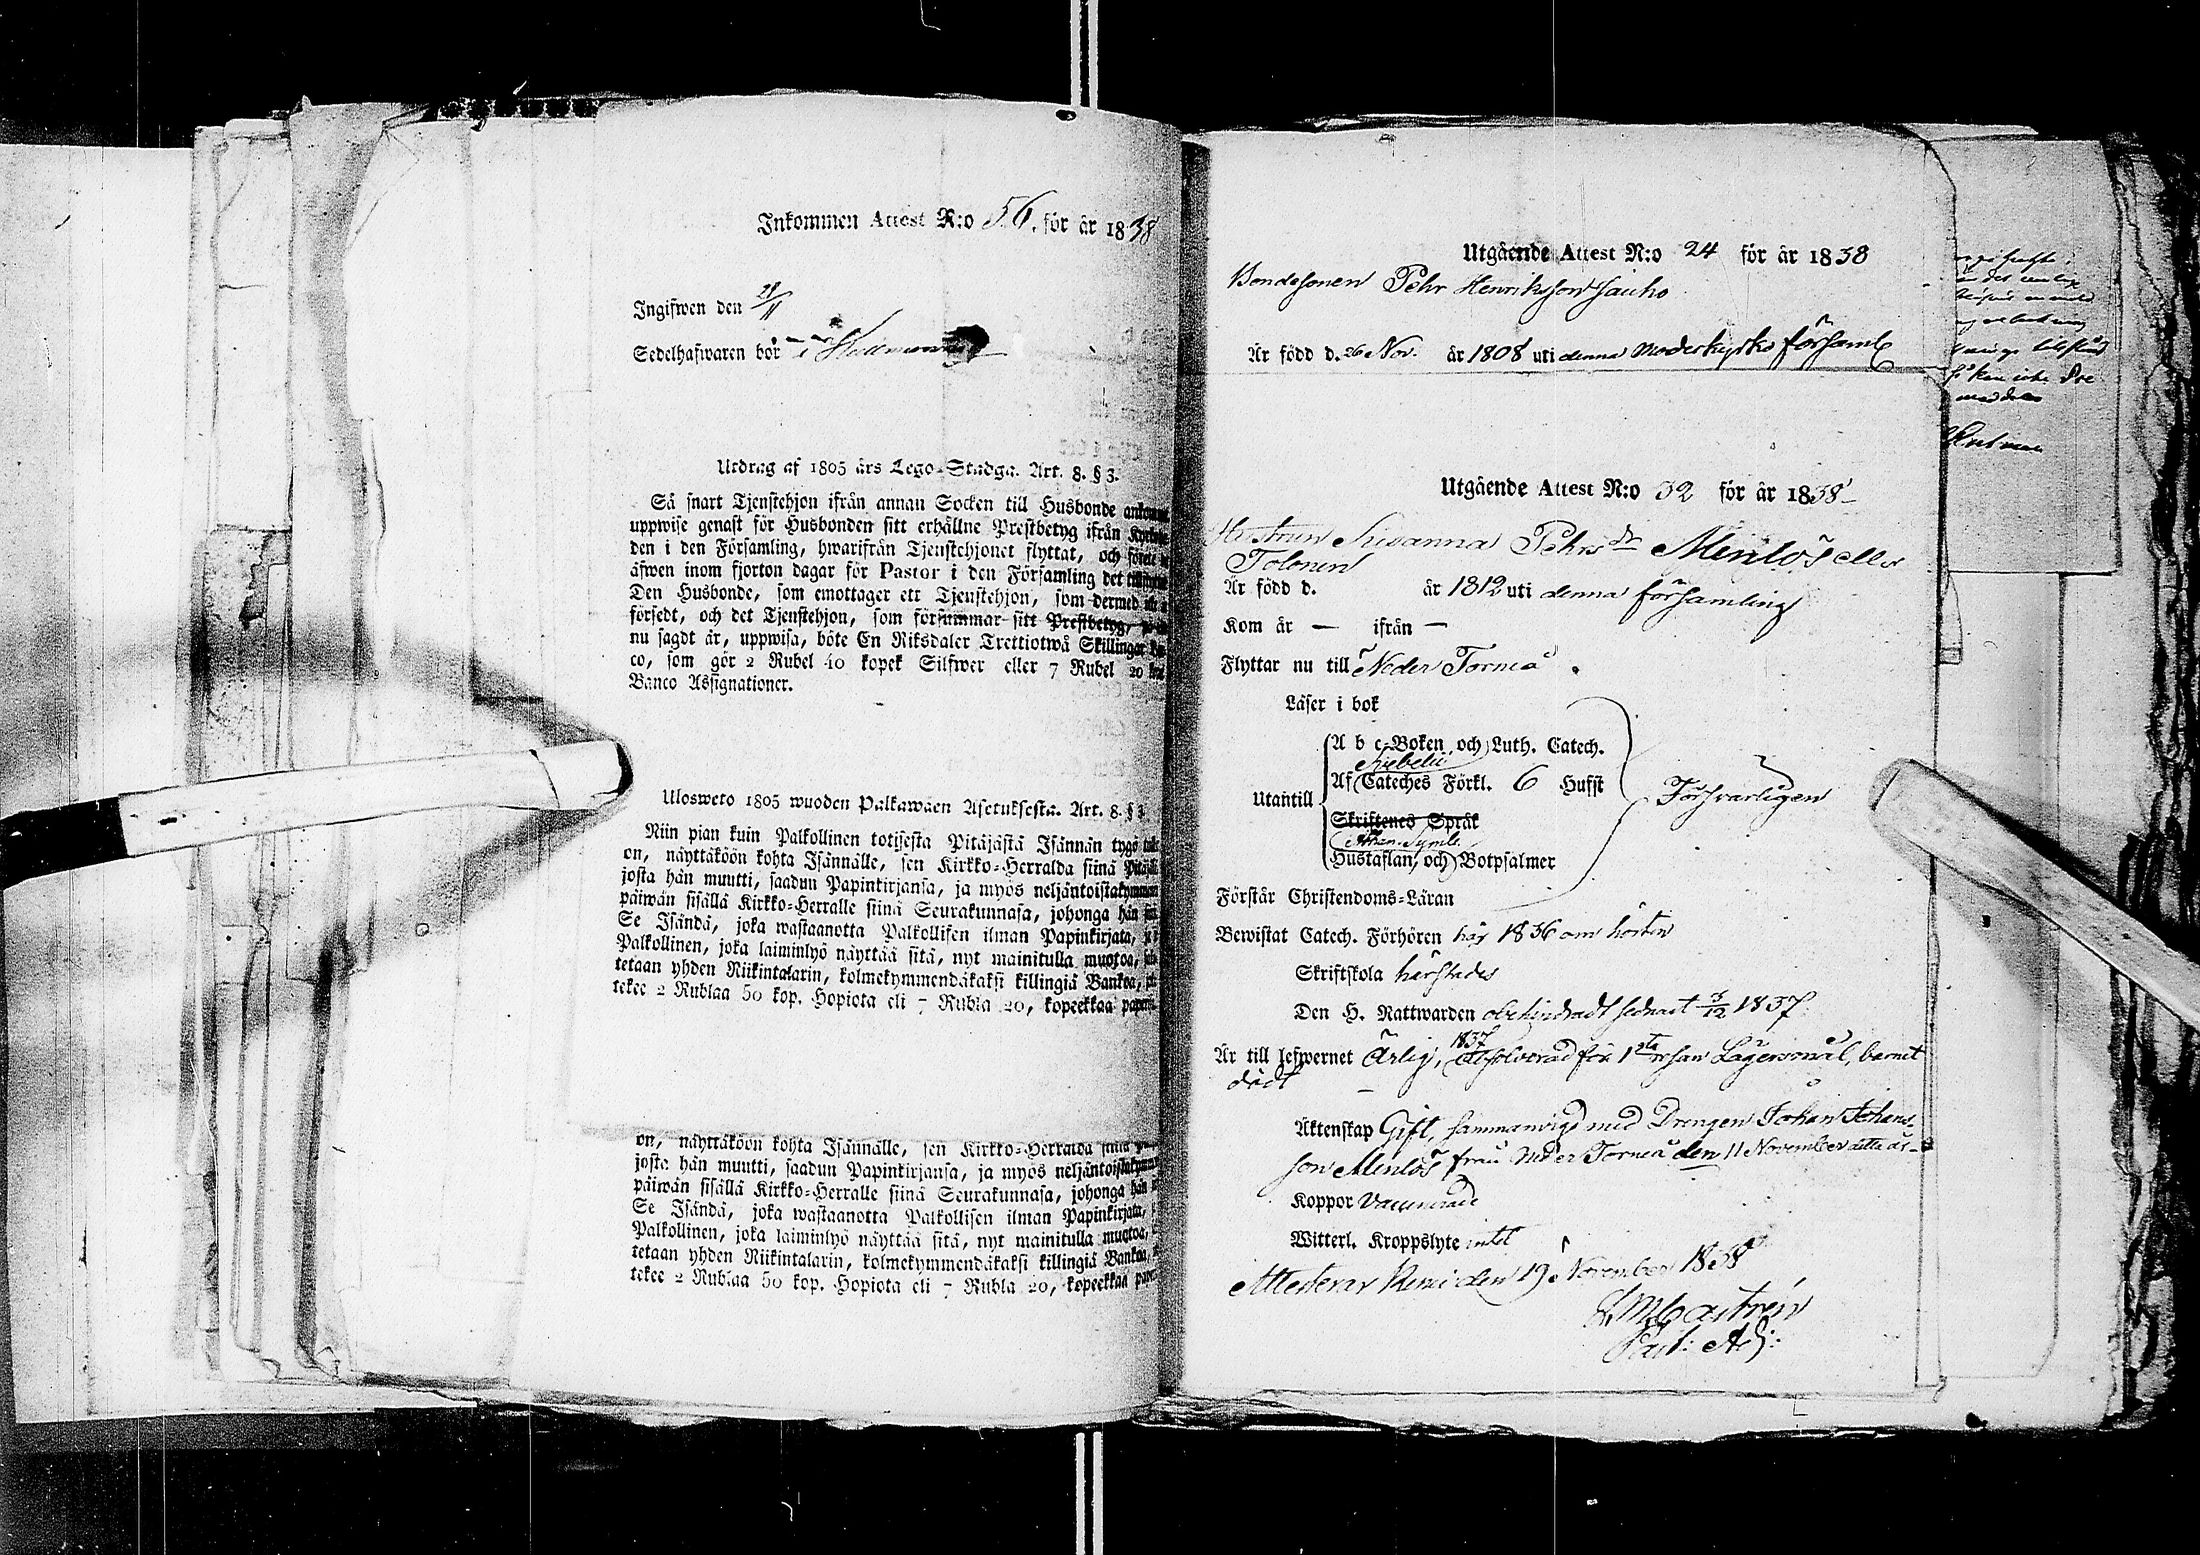 Inkommen Attest N:o 56. för år 1838
Ingifwen den 28/11
Sedelhafwaren bor i
Utdrag af 1805 års Lego-Stadga. Art. 8. § 3.
Så snart Tjenstehjon ifrån annan Socken till Husbonde
uppwise genast för Husbonden sitt erhållne Prestbetyg ifrån
den i den Församling, hwarifrån Tjenstehjonet flyttat, och
äfwen inom fjorton dagar för Pastor i den Församling det
Den Husbonde, som emottager ett Tjenstehjon, som dermed
försedt, och det Tjenstehjon, som försummar sitt Prestbetyg,
nu sagdt är, uppwisa, böte En Riksdaler Trettiotwå Skillingar
co, som gör 2 Rubel 40 kopek Silfwer eller 7 Rubel 20
Banco Assignationer.
Ulosweto 1805 wuoden Palkawäen Asetuksesta. Art. 8. § 3
Niin pian kuin Palkollinen totisesta Pitäjästä Isännän tygö
on, näyttäköön kohta Isännälle, sen Kirkko-Herralda siinä
josta hän muutti, saadun Papinkirjansa, ja myös neljäntoistakymmen
päiwän sisällä Kirkko-Herralle siinä Seurakunnasa, johonga hän
Se Isändä, joka wastaanotta Palkollisen ilman Papinkirjata,
Palkollinen, joka laiminlyö näyttää sitä, nyt mainitulla muotoa,
tetaan yhden Riikintalarin, kolmekymmendäkaksi killingiä Bankoa,
tekee 2 Rublaa 50 kop. Hopiota eli 7 Rubla 20, kopeekkaa
on, näyttäköön kohta Isännälle, sen Kirkko-Herralda siinä
josta hän muutti, saadun Papinkirjansa, ja myös
päiwän sisällä Kirkko-Herralle siinä Seurakunnasa, johonga hän
Se Isändä, joka wastaanotta Palkollisen ilman Papinkirjata,
Palkollinen, joka laiminlyö näyttää sitä, nyt mainitulla muotoa,
tetaan yhden Riikintalarin, kolmekymmendäkaksi killingiä Bankoa,
tekee 2 Rublaa 50 kop. Hopiota eli 7 Rubla 20, kopeekkaa
Utgående Attest N:o 24 för år 1838
Bondesonen Pehr Henriksson Sauko
Är född d. 26 Nov. år 1808 uti denna Moderkyrko församl
Utgående Attest N:o 32 för år 1838
Hustrun Susanna Pehrsdr Menlös eller
Tolonen
Är född d. år 1812 uti denna församling
Kom år — ifrån —
Flyttar nu till Neder Torneå
Läser i bok
A b c-Boken och Luth. Catech.
Svebelii
Utantill Af Cateches Förkl. 6 Hufst Försvarligen
Skriftenes Språk
Athan. Symb.
Hustaflan, och Botpsalmer
Förstår Christendoms-Läran
Bewistat Catech. Förhören här 1836 om hösten
Skriftskola härstädes
Den H. Nattwarden obehindradt sednast 3/12 1837
1837
Är till lefwernet Ärlig, absolverad för 1sta resan Lägersmål, barnet
dödt
Äktenskap Gift, sammanvigd med Drengen Johan Johans-
son Menlös från Neder Torneå den 11 November detta år
Koppor Vaccinerad
Witterl. Kroppslyte intet
Attesterar Kemi den 19 November 1838
Castrén
Past: Adj: